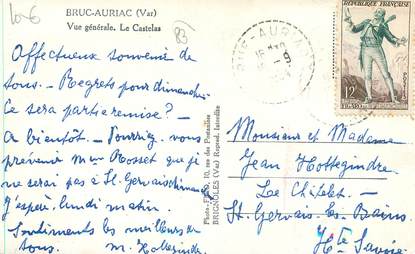 10€
BRUC-AURIAC (Var)
Vue générale. Le Castelas
83
Affectueux souvenir de
tous. - Regrets pour dimanche
ce sera partie remise? -
A bientôt. - Pourriez-vous
prévenir Mme Rosset que je
ne serai pas à St. Gervais dimanche
J'espère lundi matin.
Sentiments les meilleurs de
tous.
RÉPUBLIQUE FRANÇAISE
12F
FIGARO
Photo-Edit., 10, rue des Portanières
BRIGNOLES (Var) Reprod. Interdite
Monsieur et Madame
Jean Hottegindre
Le Châtelet -
St. Gervais-les-Bains
Hte Savoie